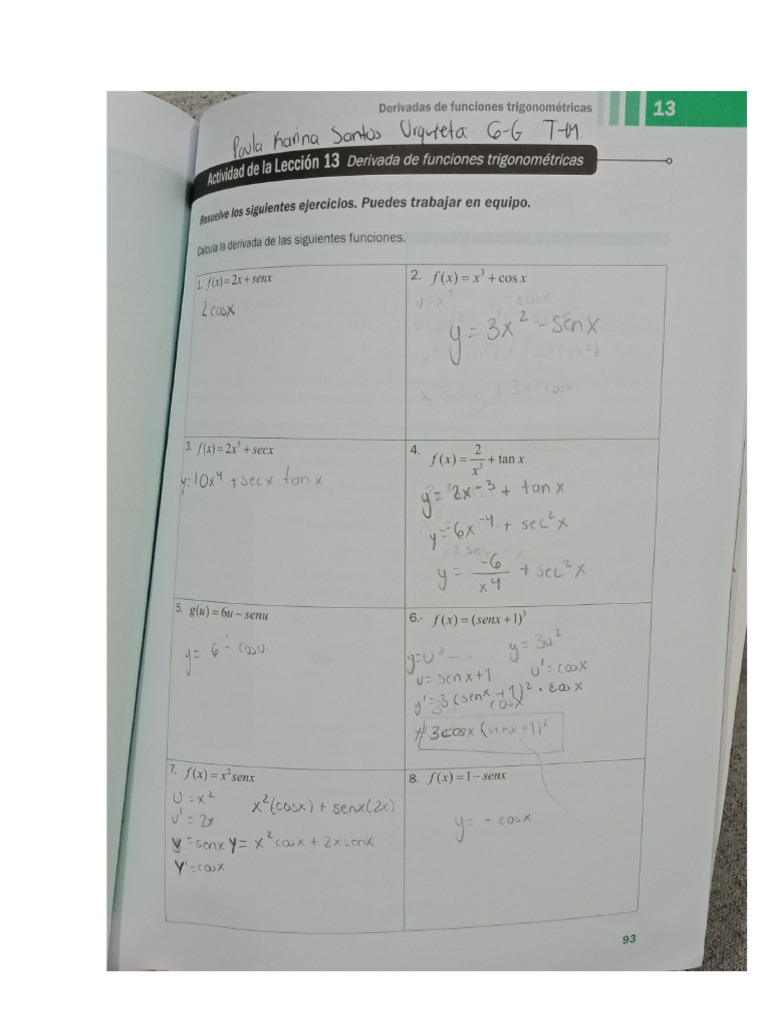 Derivadas de funciones trigonométricas 13
Paula Karina Santos Urquieta 6-G T-M.
Actividad de la Lección 13 Derivada de funciones trigonométricas
Resuelve los siguientes ejercicios. Puedes trabajar en equipo.
Calcula la derivada de las siguientes funciones.
1. f(x)=2x+senx
2cosx
2. f(x)=x³+cos x
y=3x²-senx
3. f(x)=2x⁵+secx
y=10x⁴+secx tanx
4. f(x)=2/x³+tan x
y=2x⁻³+tanx
y=-6x⁻⁴+sec²x
y=-6/x⁴+sec²x
5. g(u)=6u-senu
y=6-cosu
6.- f(x)=(senx+1)³
y=u³
y=3u²
u=senx+1
u'=cosx
y'=3(senx+1)²·cosx
cosx
y'=3cosx(senx+1)²
7. f(x)=x²senx
U=x²
x²(cosx)+senx(2x)
U'=2x
y=senx y=x²cosx+2xsenx
Y'=cosx
8. f(x)=1-senx
y=-cosx
93